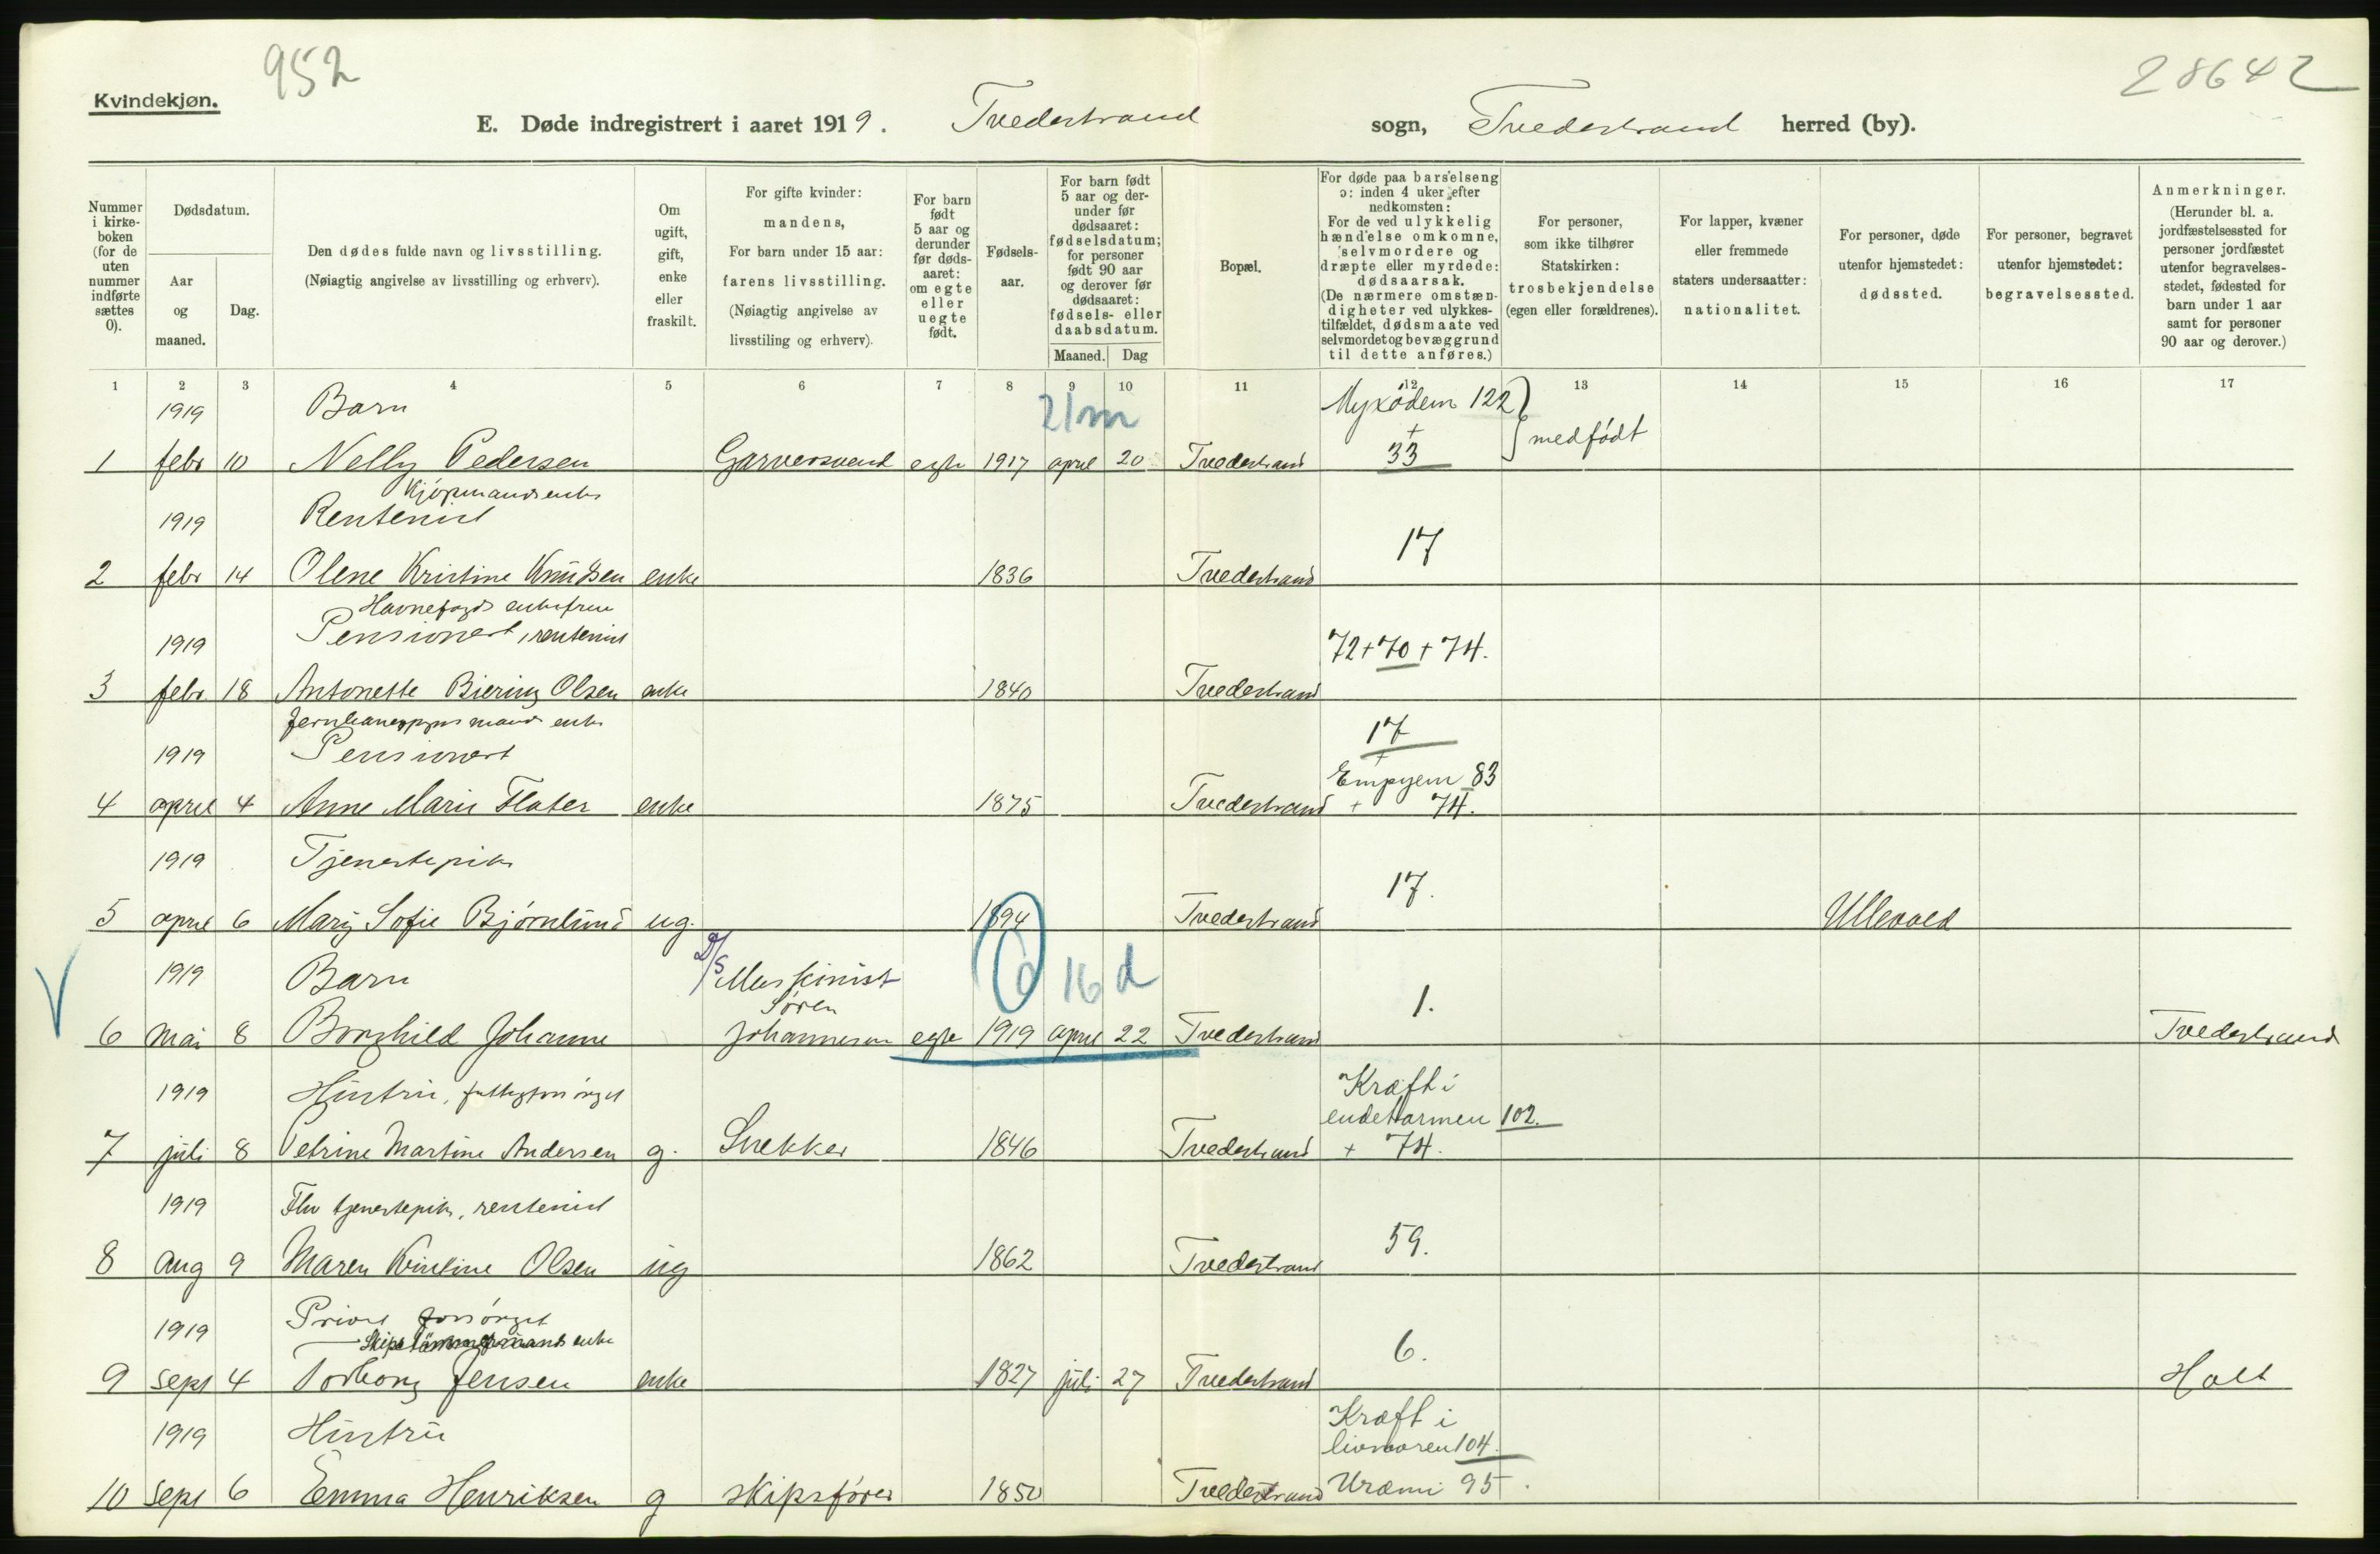 952
28642
Kvindekjøn.
E. Døde indregistrert i aaret 1919. Tvedestrand sogn, Tvedestrand herred (by).
Nummer i kirke- boken (for de uten nummer indførte sættes 0).
Dødsdatum.
Aar og maaned.
Dag.
Den dødes fulde navn og livsstilling.
(Nøiagtig angivelse av livsstilling og erhverv).
Om ugift, gift, enke eller fraskilt.
For gifte kvinder: mandens,
For barn under 15 aar: farens livsstilling.
(Nøiagtig angivelse av livsstiling og erhverv).
For barn født 5 aar og derunder før døds- aaret: om egte eller uegte født.
Fødsels- aar.
For barn født 5 aar og der- under før dødsaaret: fødselsdatum; for personer født 90 aar og derover før dødsaaret: fødsels- eller daabsdatum.
Maaned. Dag
Bopæl.
For døde paa barselseng ɔ: inden 4 uker efter nedkomsten:
For de ved ulykkelig hændelse omkomne, selvmordere og dræpte eller myrdede: dødsaarsak.
(De nærmere omstæn- digheter ved ulykkes- tilfældet, dødsmaate ved selvmordet og bevæggrund til dette anføres.)
For personer, som ikke tilhører Statskirken: trosbekjendelse (egen eller forældrenes).
For lapper, kvæner eller fremmede staters undersaatter: nationalitet.
For personer, døde utenfor hjemstedet: dødssted.
For personer, begravet utenfor hjemstedet: begravelsessted.
Anmerkninger.
(Herunder bl. a. jordfæstelsessted for personer jordfæstet utenfor begravelses- stedet, fødested for barn under 1 aar samt for personer 90 aar og derover.)
1 2 3 4 5 6 7 8 9 10 11 12 13 14 15 16 17
1919 Barn 21 m Myxødem 122 } medfødt
1 febr 10 Nelly Pedersen Garversvend egte 1917 april 20 Tvedestrand + 33
Kjøpmandsenke
1919 Rentenist 17
2 febr 14 Olene Kristine Knudsen enke 1836 Tvedestrand
Havnefogds enkefrue
1919 Pensionert, rentenist 72+70+74.
3 febr 18 Antonette Biering Olsen enke 1840 Tvedestrand
enke 17
1919 Pensionert + Empyem 83
4 april 4 Anne Marie Flater enke 1875 Tvedestrand + 74.
1919 Tjenestepike 17.
5 april 6 Mary Sofie Bjørnlund ug. 1894 Tvedestrand Ullevold
1919 Barn D/S Maskinist 0 16 d 1.
Søren
6 mai 8 Borghild Johanne Johannesen egte 1919 april 22 Tvedestrand Tvedestrand
1919 Hustru, fattigforsørget Kræft i endetarmen 102.
7 juli 8 Petrine Martine Andersen g. Snekker 1846 Tvedestrand + 74.
1919 Fhv tjenestepike, rentenist 59.
8 aug 9 Maren Kristine Olsen ug 1862 Tvedestrand
1919 Privat forsørget 6.
Skipstømmermands enke
9 sept 4 Torborg Jensen enke 1827 juli 27 Tvedestrand Holt
1919 Hustru Kræft i livmoren 104.
10 sept 6 Emma Henriksen g skipsfører 1850 Tvedestrand Uræmi 95.